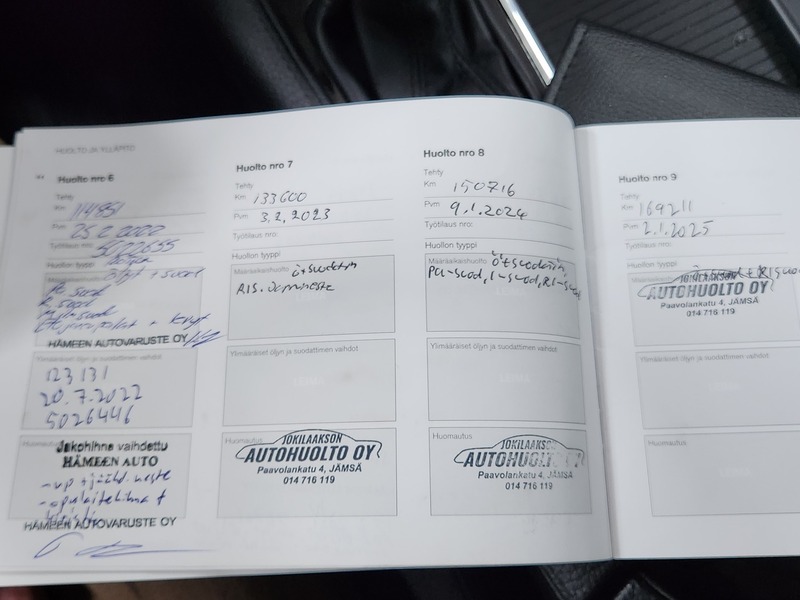 HUOLTO JA YLLÄPITO
Huolto nro 6
Tehty
Km 114951
Pvm 25.2.2022
Työtilaus nro: 5022655
Huollon tyyppi
öljyt + suod
HÄMEEN AUTOVARUSTE OY
Ylimääräiset öljyn ja suodattimen vaihdot
123131
20.7.2022
5026446
Huomautus
Jakohihna vaihdettu
HÄMEEN AUTO
- vp + jäähd. neste
- apulaitehihna +
HÄMEEN AUTOVARUSTE OY
Huolto nro 7
Tehty
Km 133600
Pvm 3.2.2023
Työtilaus nro:
Huollon tyyppi
Määräaikaishuolto ö+suodatin
Ylimääräiset öljyn ja suodattimen vaihdot
Huomautus
JOKILAAKSON
AUTOHUOLTO OY
Paavolankatu 4, JÄMSÄ
014 716 119
Huolto nro 8
Tehty
Km 150716
Pvm 9.1.2024
Työtilaus nro:
Huollon tyyppi
Määräaikaishuolto ö+suodatin,
PU-suod, I-suod, RI-suod
Ylimääräiset öljyn ja suodattimen vaihdot
Huomautus
JOKILAAKSON
AUTOHUOLTO OY
Paavolankatu 4, JÄMSÄ
014 716 119
Huolto nro 9
Tehty
Km 169211
Pvm 2.1.2025
Työtilaus nro:
Huollon tyyppi
ö+suod + RI suod
JOKILAAKSON
AUTOHUOLTO OY
Paavolankatu 4, JÄMSÄ
014 716 119
Ylimääräiset öljyn ja suodattimen vaihdot
Huomautus